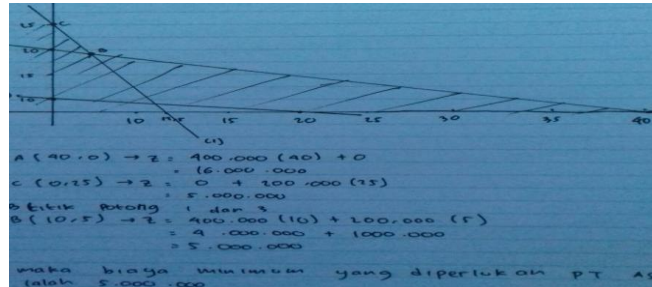 25 C
20 B
15
10
10 12,5 15 20 25 30 35 40
(1)
A (40,0) → Z = 400.000 (40) + 0
= 16.000.000
C (0,25) → Z = 0 + 200.000 (25)
= 5.000.000
B titik potong 1 dan 3
B (10,5) → Z = 400.000 (10) + 200.000 (5)
= 4.000.000 + 1000.000
= 5.000.000
maka biaya minimum yang diperlukan PT AS
ialah 5.000.000